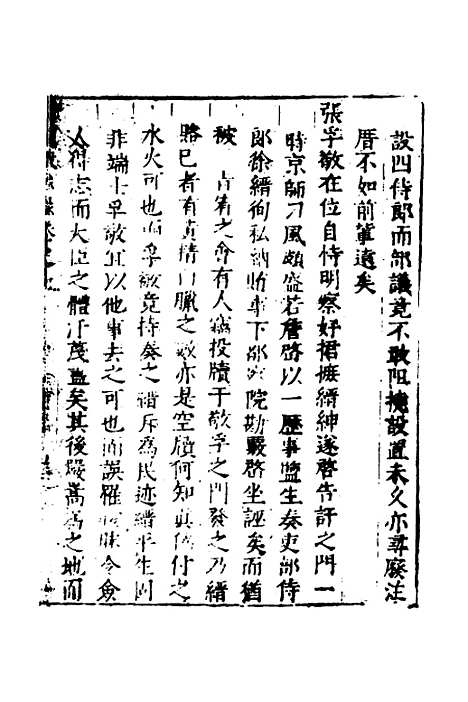 設四侍郎而部議竟不敢阻撓設置未久亦尋廢注
厝不如前輩遠矣
張孚敬在位自恃明察好捃摭縉紳遂啓告訐之門一
時京師刁風頗盛若詹啓以一歷事監生奏吏部侍
郎徐縉徇私納賄事下部院勘覈啓坐誣矣而猶
被 旨宥之會有人投牘于敬孚之門發之乃縉
賂已者有黃精白臘之數亦是空牘何知真僞付之
水火可也而孚敬竟持奏之縉斥爲民迹縉平生固
非端士早敬宜以他事去之可也而誤羅令僉
人得志而大臣之體汙蔑盡矣其後嚴嵩爲之地而